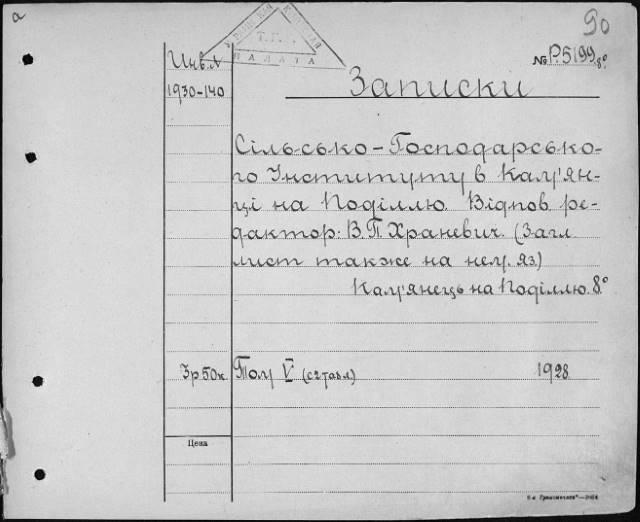 а
90
Т.Г.
ПАЛАТА
Инв. №
№ Р.5199 8º
1930-140
Записки
Сільсько-Господарсько-
го Інституту в Кам'ян-
ці на Поділлю. Відпов. ре-
дактор: В.П. Храневич. (Загл.
лист также на нем. яз.)
Кам'янець на Поділлю. 8º
3р.50к. Том V (с 2 табл.) 1928
Цена